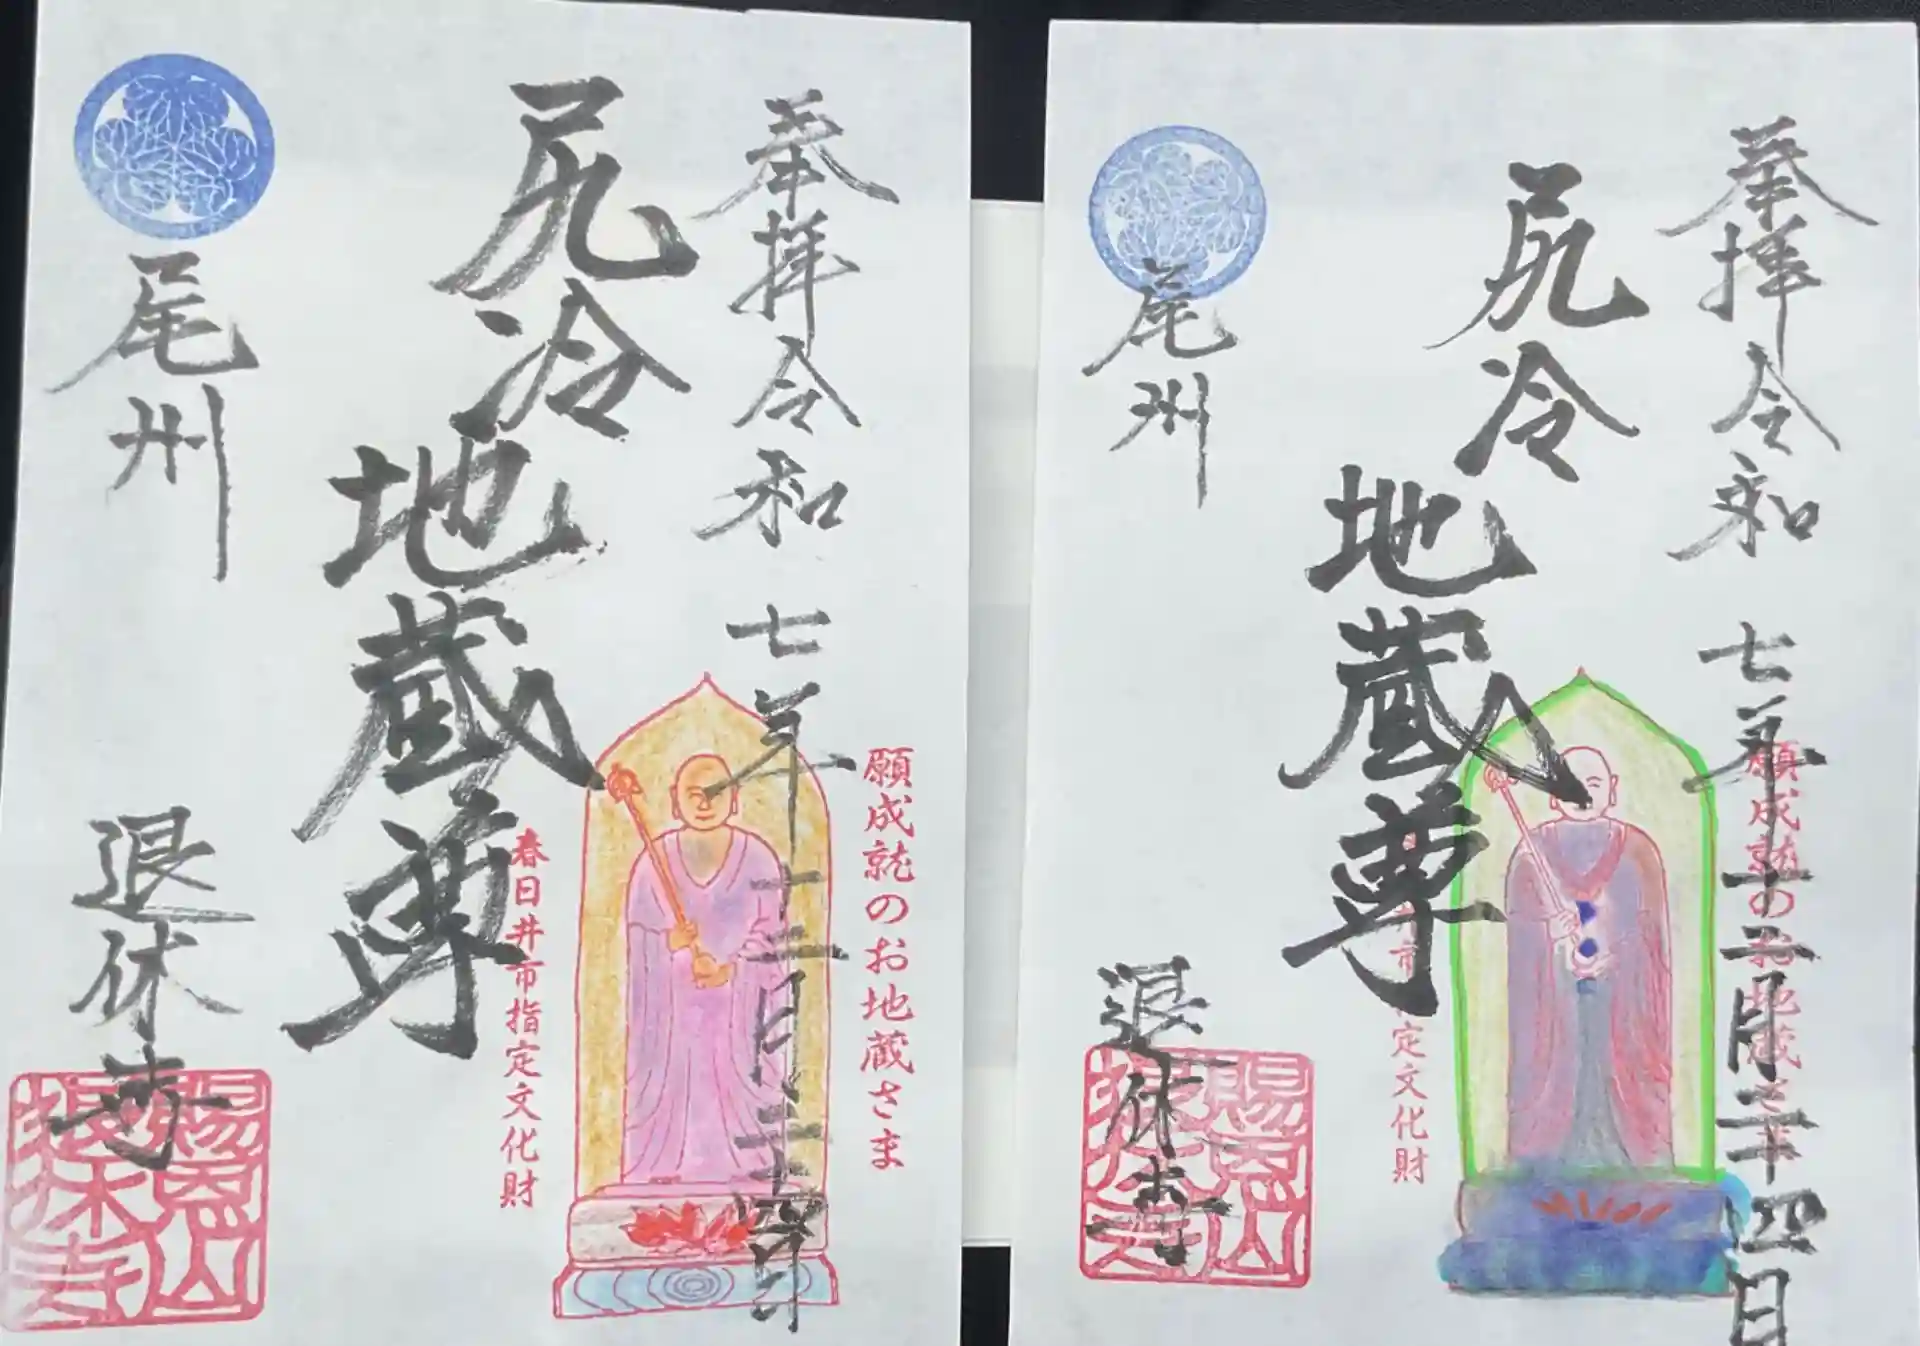 奉拝 令和七年十二月二十四日
願成就のお地蔵さま
尻冷地蔵尊
春日井市指定文化財
尾州
退休寺
賜恩山
退休寺
奉拝 令和七年十二月二十四日
願成就のお地蔵さま
尻冷地蔵尊
市 定文化財
尾州
退休寺
賜恩山
退休寺